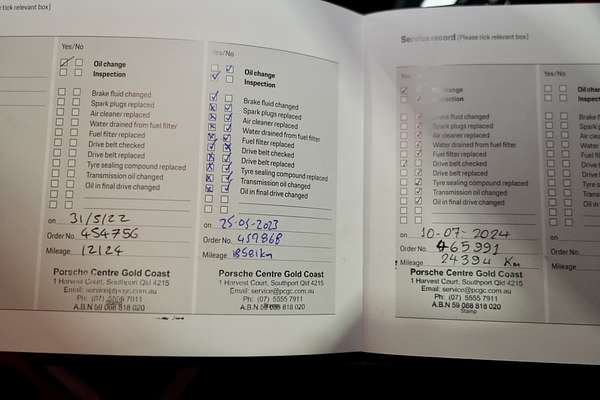 e tick relevant box]
Yes/No
Oil change
Inspection
Brake fluid changed
Spark plugs replaced
Air cleaner replaced
Water drained from fuel filter
Fuel filter replaced
Drive belt checked
Drive belt replaced
Tyre sealing compound replaced
Transmission oil changed
Oil in final drive changed
on 31/5/22
Order No. 454756
Mileage 12124
Porsche Centre Gold Coast
1 Harvest Court, Southport Qld 4215
Email: service@pcgc.com.au
Ph: (07) 5555 7911
A.B.N 59 088 818 020
Yes/No
Oil change
Inspection
Brake fluid changed
Spark plugs replaced
Air cleaner replaced
Water drained from fuel filter
Fuel filter replaced
Drive belt checked
Drive belt replaced
Tyre sealing compound replaced
Transmission oil changed
Oil in final drive changed
on 25-05-2023
Order No. 459868
Mileage 18581km
Porsche Centre Gold Coast
1 Harvest Court, Southport Qld 4215
Email: service@pcgc.com.au
Ph: (07) 5555 7911
A.B.N 59 088 818 020
Service record [Please tick relevant box]
Yes/No
Oil change
Inspection
Brake fluid changed
Spark plugs replaced
Air cleaner replaced
Water drained from fuel filter
Fuel filter replaced
Drive belt checked
Drive belt replaced
Tyre sealing compound replaced
Transmission oil changed
Oil in final drive changed
on 10-07-2024
Order No. 465991
Mileage 24394 Km
Porsche Centre Gold Coast
1 Harvest Court, Southport Qld 4215
Email: service@pcgc.com.au
Ph: (07) 5555 7911
A.B.N 59 088 818 020
Stamp
Yes/No
Oil chan
Inspec
Brake f
Spark p
Air clea
Water
Fuel filt
Drive b
Drive b
Tyre se
Transm
Oil in fi
on
Order No.
Mileage